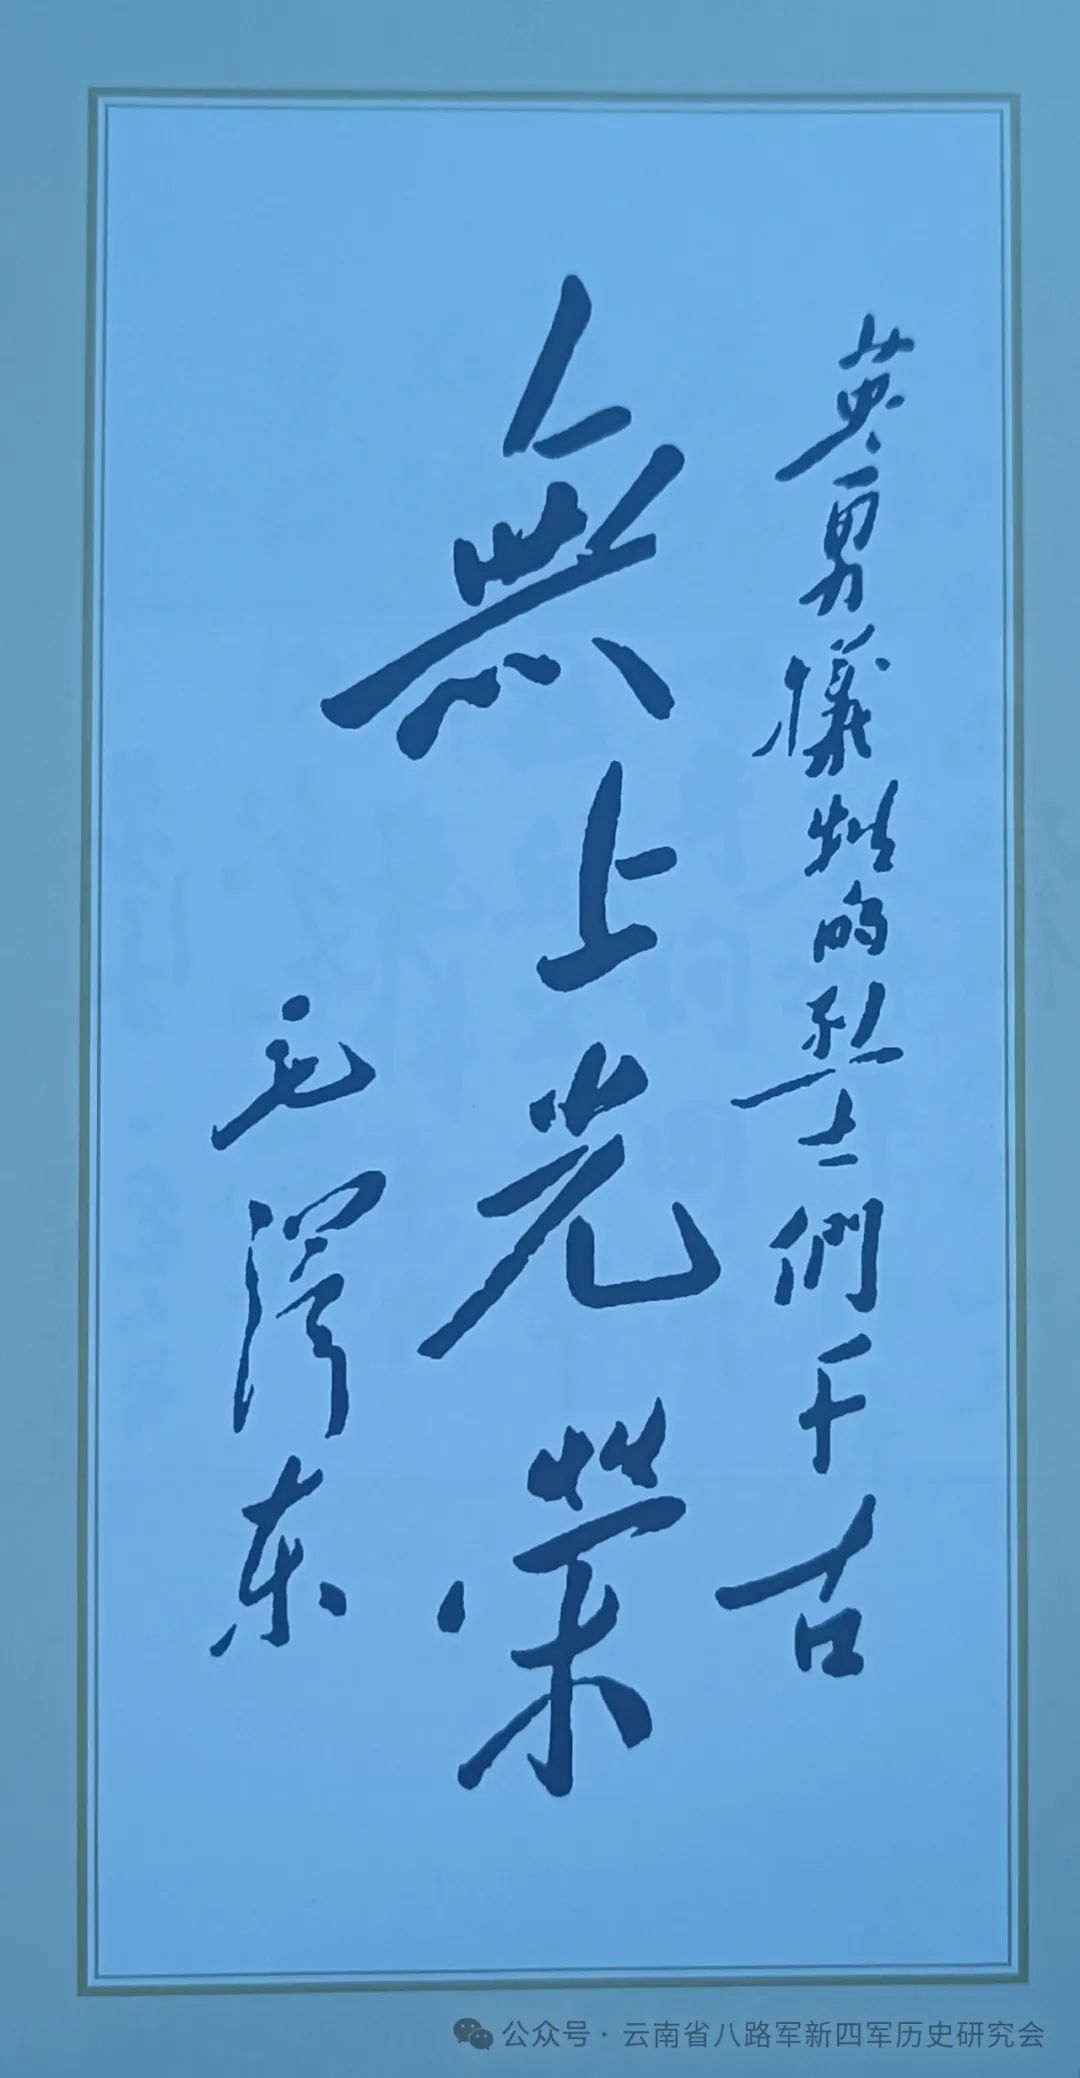 英勇犧牲的烈士們千古
無上光榮
毛澤东
公众号·云南省八路军新四军历史研究会